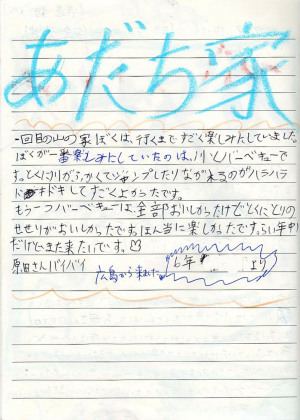 あだち家
一回目の山の家ぼくは、行くまですごく楽しみんしていました。
ぼくが一番楽しみとしていたのは、川とバーベキューで
すっごく川がふかくてジャンプしたりながれるのがハラハラ
ドキドキしてすごくよかったです。
もう一つバーベキューは、全部おいしかったけどとくにとりの
せせりがおいしかったです。ほん当に楽しかったです。らい年中1
だけどまた来たいです。♡
原田さんバイバイ 広島から来た 6年 より